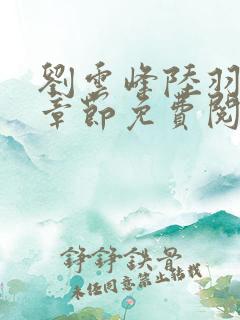 劉雲峰陸羽
章節免費閱
錚錚鉄骨
未經同意禁止轉載